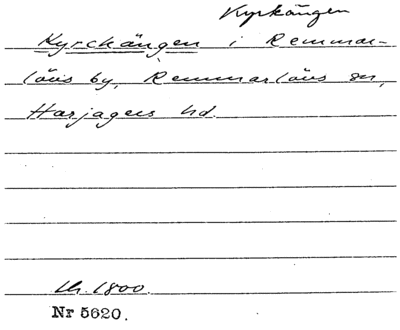 Kyrkängen
Kyrckängen i Remmar-
löüs by, Remmarlöüs sn,
Harjagers hd.
Lh. 1800.
Nr 5620.